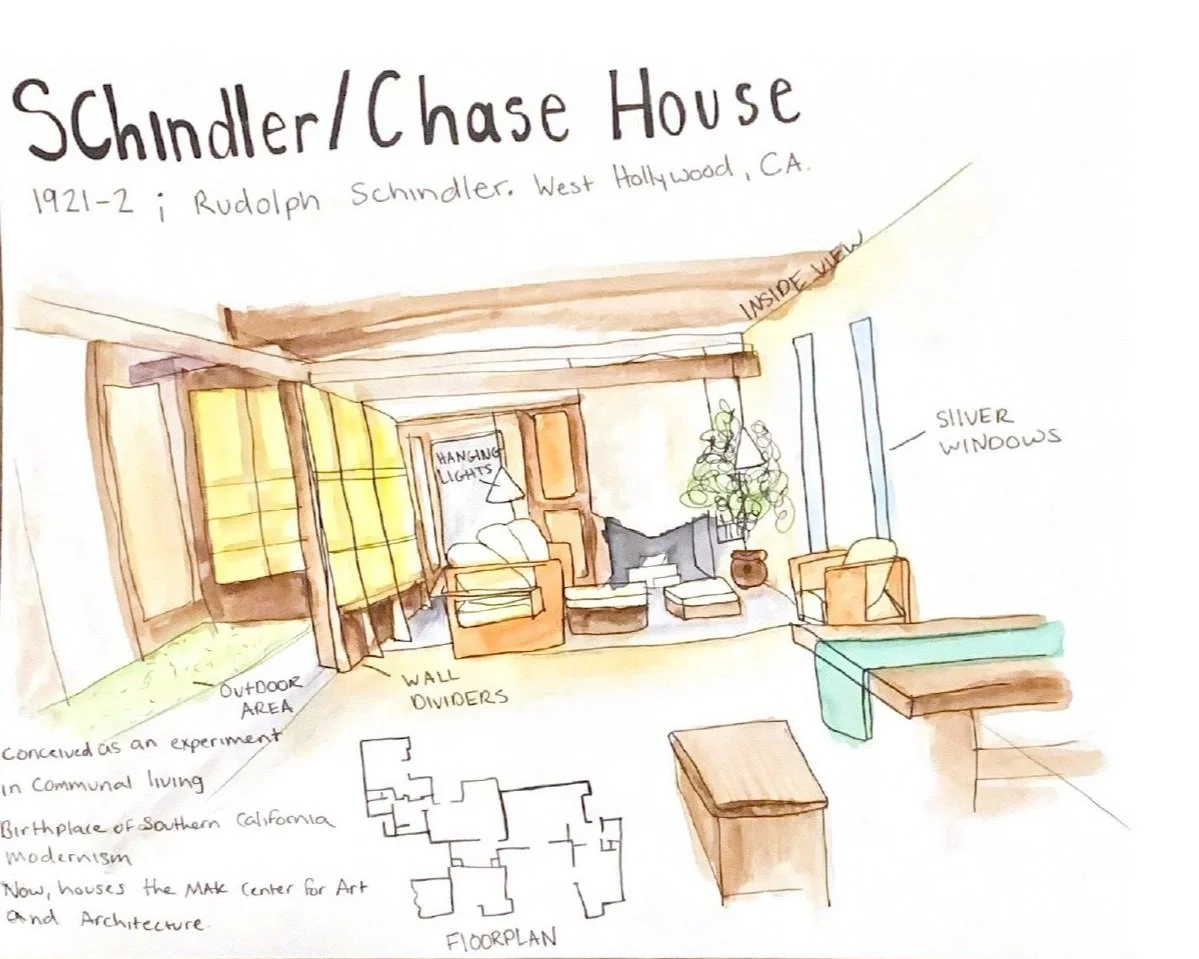 SChindler/Chase House
1921-2 ; Rudolph Schindler. West Hollywood, CA.
INSIDE VIEW
SIIVER
WINDOWS
HANGING
LIGHTS
OUTDOOR
AREA
WALL
DIVIDERS
conceived as an experiment
in communal living
Birthplace of Southern California
modernism
Now, houses the MAK Center for Art
and Architecture.
FLOORPLAN